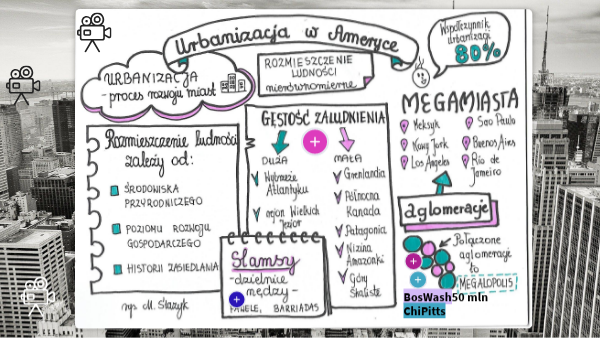 Urbanizacja w Ameryce
Współczynnik
urbanizacji
80%
URBANIZACJA
- proces rozwoju miast
ROZMIESZCZENIE
LUDNOŚCI
nierównomierne
MEGAMIASTA
Meksyk
Nowy Jork
Los Angeles
Sao Paulo
Buenos Aires
Rio de
Janeiro
Rozmieszczenie ludności
zależy od:
ŚRODOWISKA
PRZYRODNICZEGO
POZIOMU ROZWOJU
GOSPODARCZEGO
HISTORII ZASIEDLANIA
GĘSTOŚĆ ZALUDNIENIA
DUŻA
Wybrzeże
Atlantyku
rejon Wielkich
Jezior
MAŁA
Grenlandia
Północna
Kanada
Patagonia
Nizina
Amazonki
Góry
Skaliste
aglomeracje
Połączone
aglomeracje
to
MEGALOPOLIS
BosWash 50 mln
ChiPitts
Slamsy
- dzielnice
nędzy -
BARRIADAS
rys. M. Stażyk